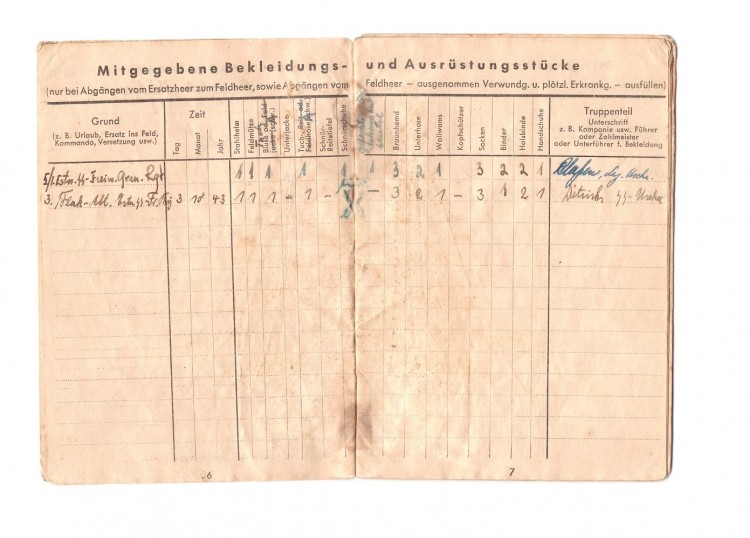 Mitgegebene Bekleidungs- und Ausrüstungsstücke
(nur bei Abgängen vom Ersatzheer zum Feldheer, sowie Abgängen vom Feldheer — ausgenommen Verwundg. u. plötzl. Erkrankg. — ausfüllen)
Grund
(z. B. Urlaub, Ersatz ins Feld,
Kommando, Versetzung usw.)
Zeit
Tag
Monat
Jahr
Stahlhelm
Feldmütze
Unterjacke
Tuch-
Schnür-
Braunhemd
Unterhose
Wollwams
Kopfschützer
Socken
Binder
Halsbinde
Handschuhe
Truppenteil
Unterschrift
z. B. Kompanie usw. Führer
oder Zahlmeister
oder Unterführer f. Bekleidung
5/1. Estn. SS-Freiw. Gren. Rgt 1 1 1 1 1 3 2 1 3 2 2 1
3. /Flak-Abt. 3 10 43 1 1 1 – 1 – – 3 2 1 – 3 1 2 1
6
7